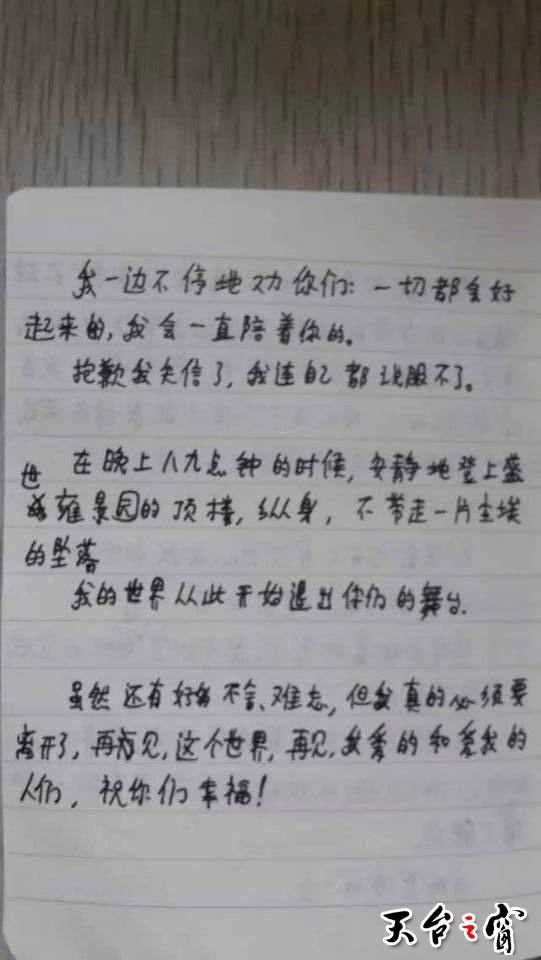 我一边不停地劝你们：一切都会好
起来的，我会一直陪着你的。
抱歉我失信了，我连自己都说服不了。
在晚上八九点钟的时候，安静地登上盛
世
雍景园的顶楼，纵身，不带走一片尘埃
的坠落
我的世界从此开始退出你们的舞台.
虽然还有好多不舍、难忘，但我真的必须要
离开了，再见，这个世界，再见，我爱的和爱我的
人们，祝你们幸福！
天台之窗